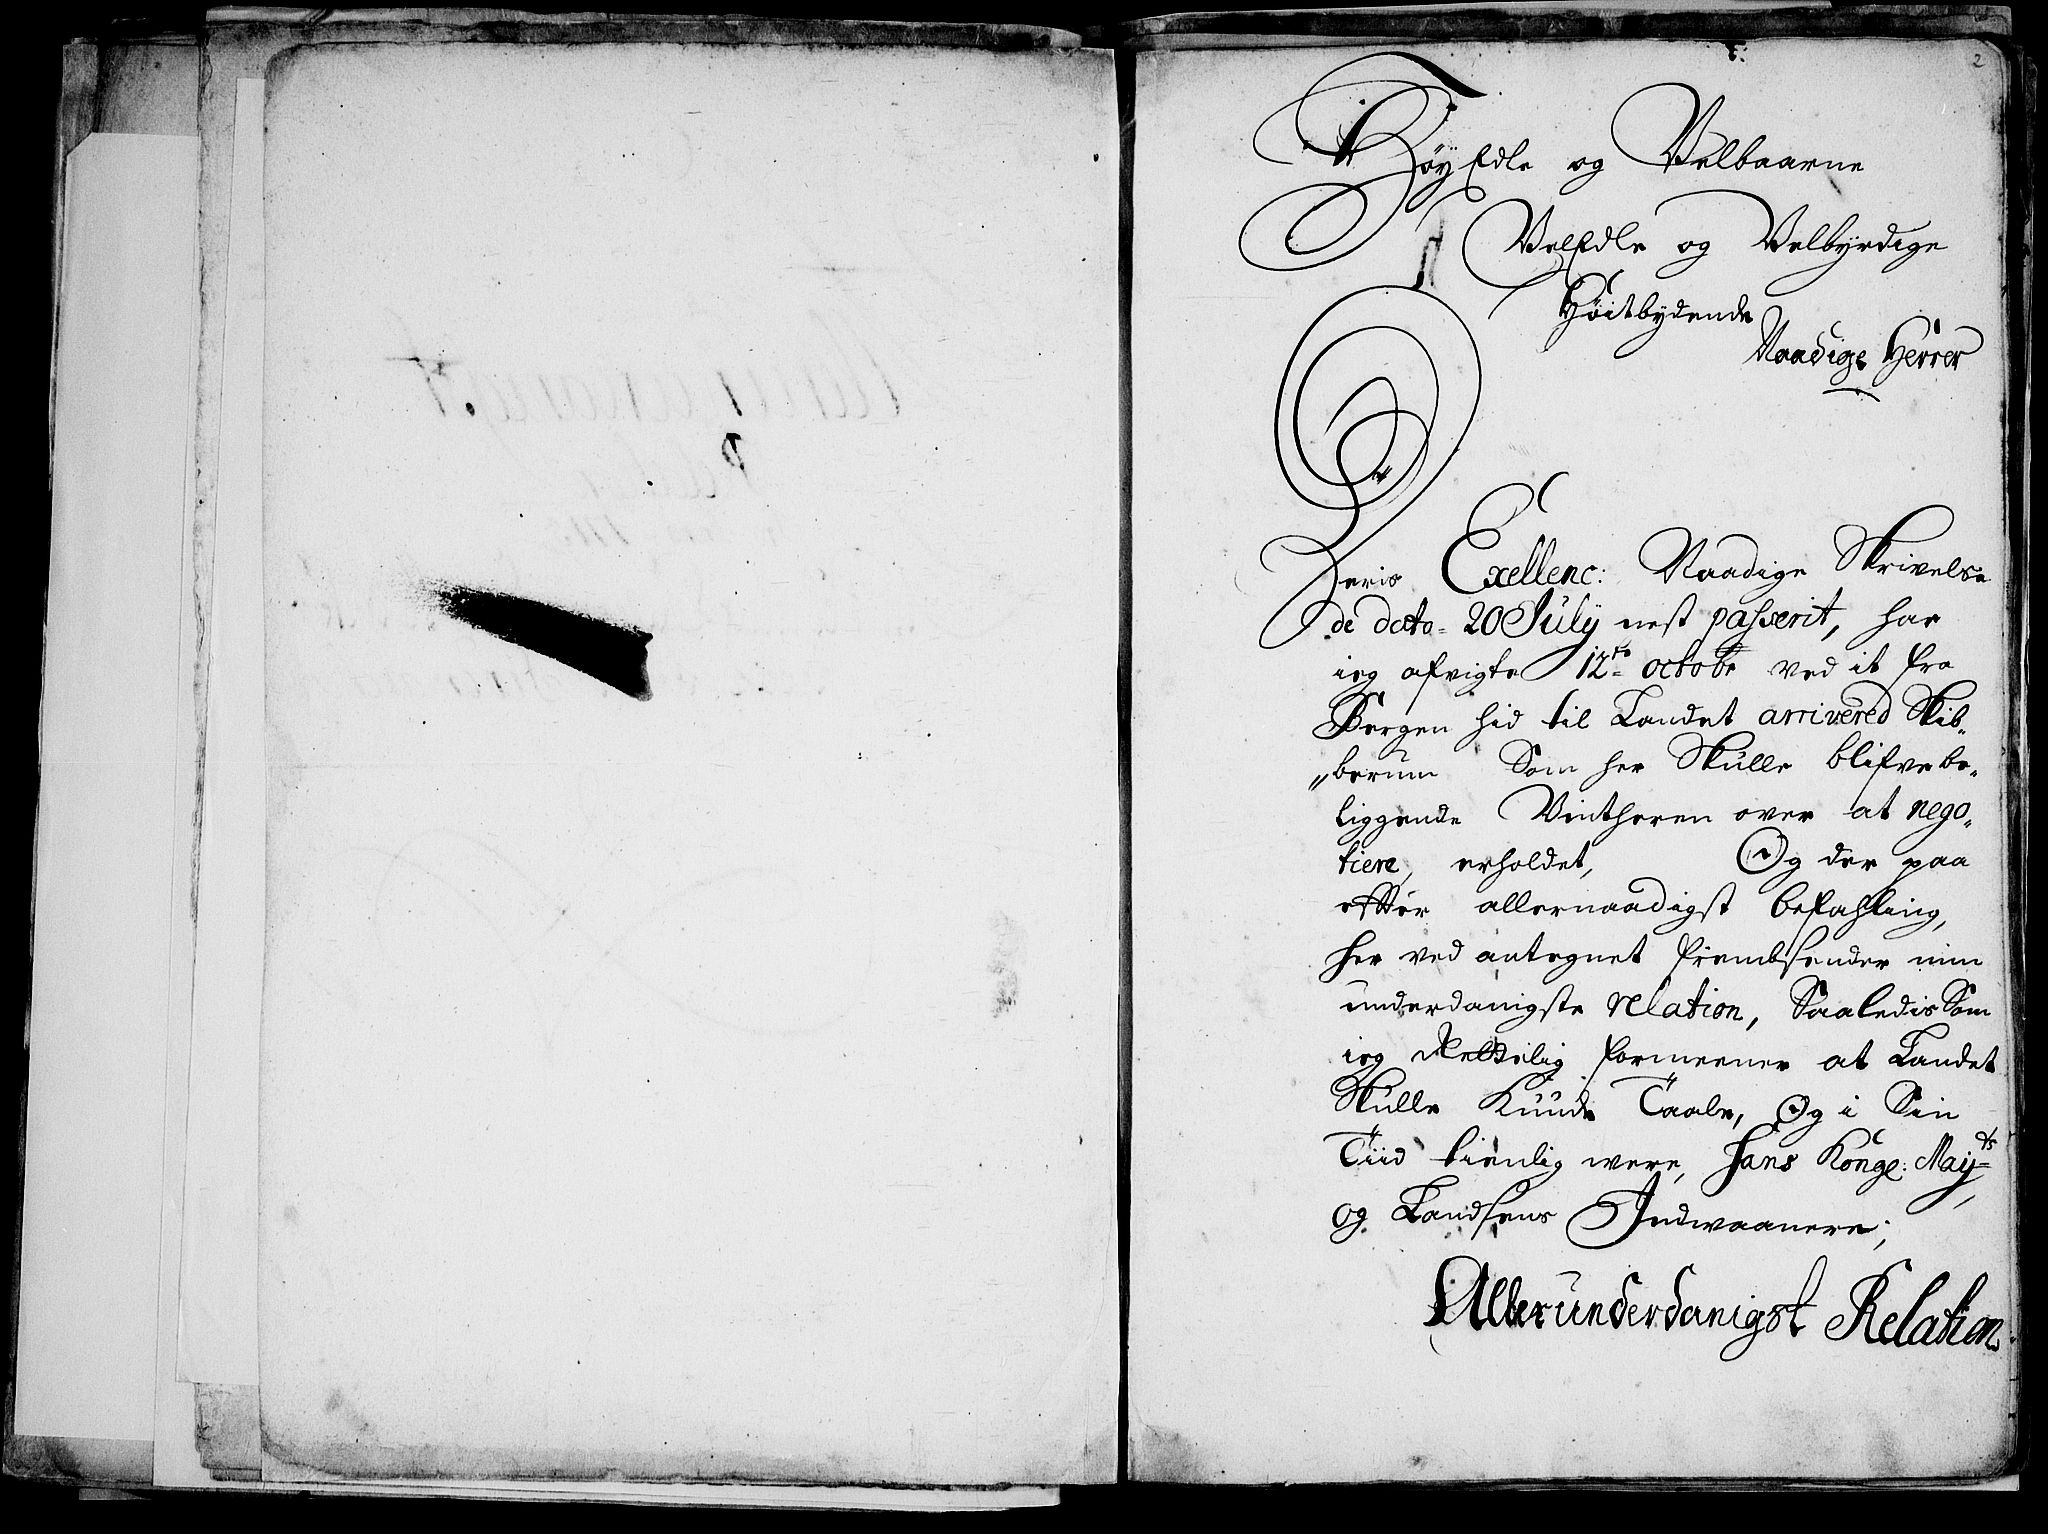 2
HöyEdle og Velbaarne
VelEdle og Velbÿrdige
Höitbydende
Naadige Herrer
Deris Exellenc: Naadige Skrivelse
de dato= 20 Julÿ nest passerit, har
ieg afvigte 12to octobr ved it fra
Bergen hid til Landet arrivered Skib„
„berum Som her Skulle blifve be„
liggende Vintheren over at nego„
tiere, erholdet, Og der paa
effter allernaadigst befahling,
her ved antegnet frembsender min
underdanigste relation, Saaledis Som
ieg Rettelig formeener at Landet
Skulle Kunde Taale, Og i Sin
Tiid tienlig were, Hans Kongl: Mayts
og Landsens Indwaanere;
Allerunderdanigst Relation